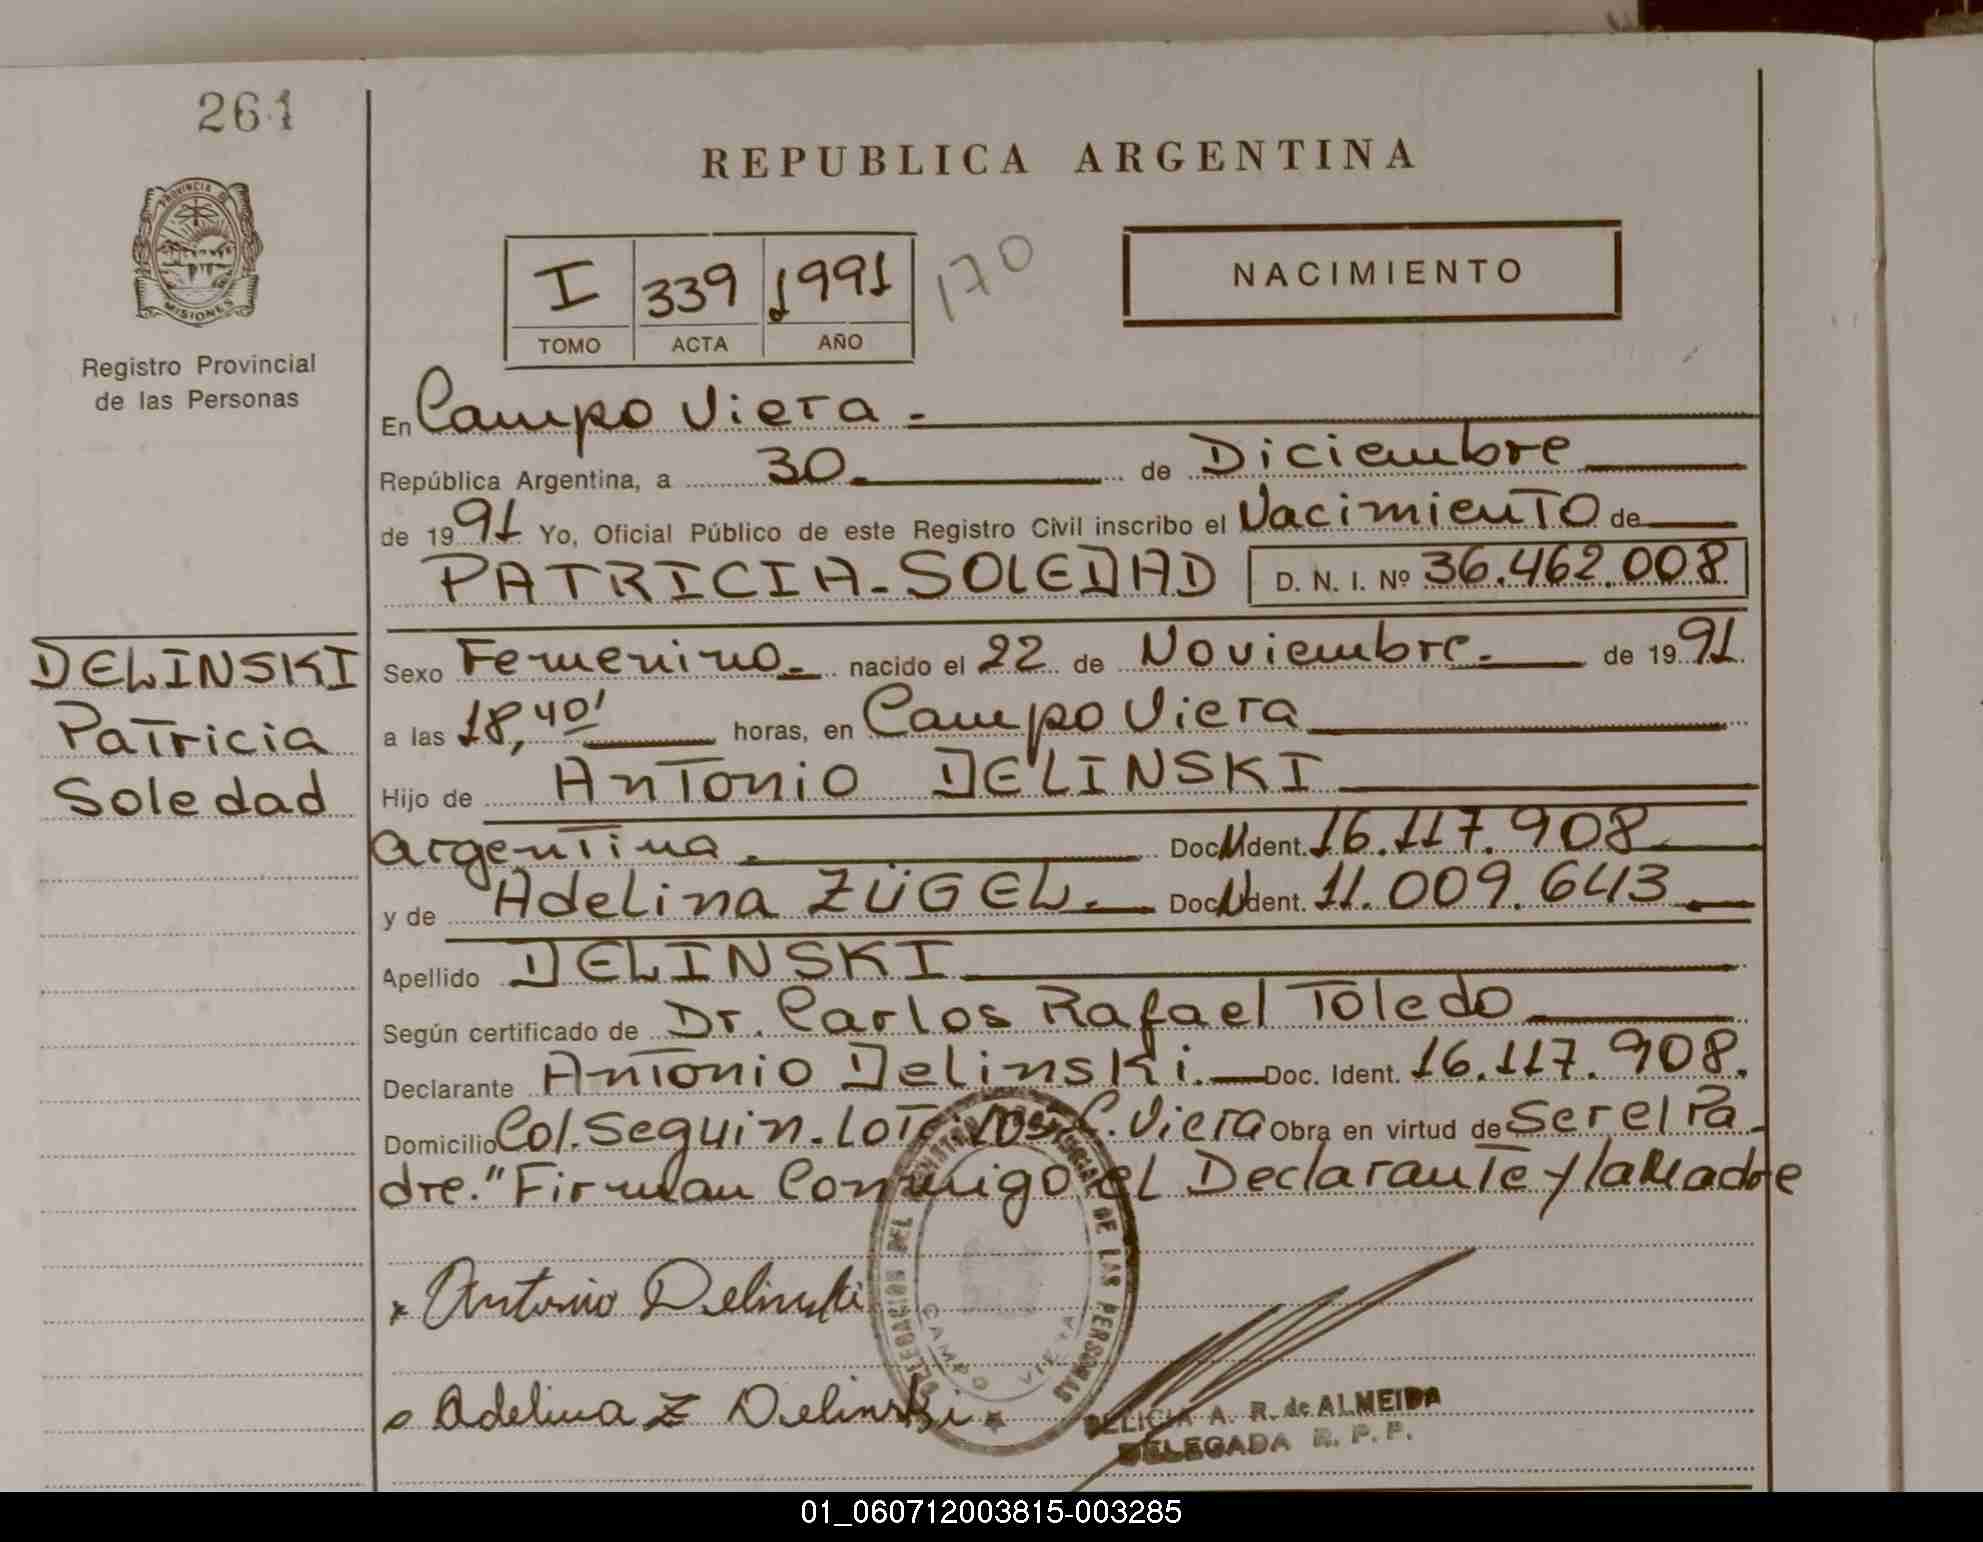 261
REPUBLICA ARGENTINA
PROVINCIA DE
MISIONES
Registro Provincial
de las Personas
I 339 1991
TOMO ACTA AÑO
170
NACIMIENTO
En Campo Viera.
República Argentina, a 30 de Diciembre
de 1991 Yo, Oficial Público de este Registro Civil inscribo el Nacimiento de
PATRICIA-SOLEDAD D. N. I. Nº 36.462.008
DELINSKI
Patricia
Soledad
Sexo Femenino. nacido el 22 de Noviembre. de 1991
a las 18,40' horas, en Campo Viera
Hijo de Antonio DELINSKI
Argentina. Doc. Ident. 16.117.908
y de Adelina ZÜGEL. Doc. Ident. 11.009.643
Apellido DELINSKI
Según certificado de Dr. Carlos Rafael Toledo
Declarante Antonio Delinski. Doc. Ident. 16.117.908.
Domicilio Col. Seguin. Lote C. Viera Obra en virtud de Ser el Pa
dre." Firman Conmigo el Declarante y la Madre
x Antonio Delinski
Adelina Z Delinski
DE LAS PERSONAS
CAMPO VIERA
DELICIA A. R. de ALMEIDA
DELEGADA R. P. P.
01_060712003815-003285